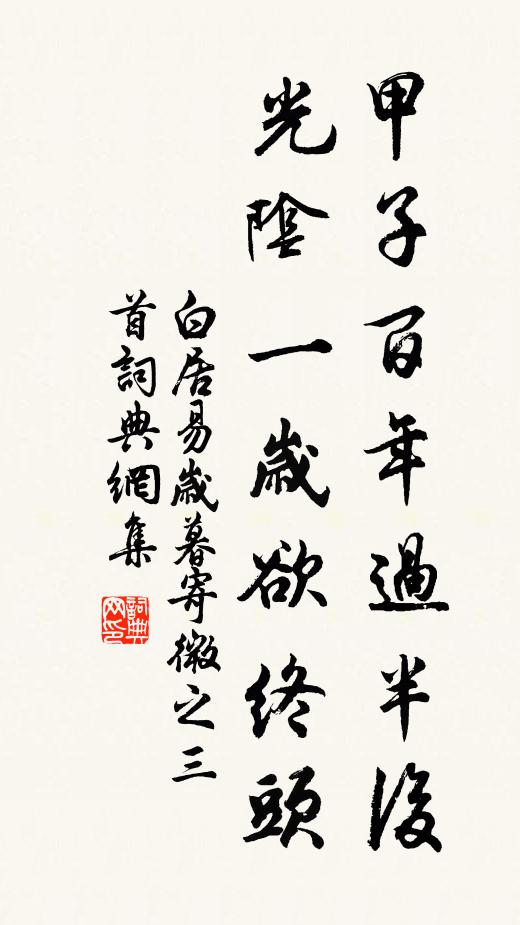 甲子百年過半後
光陰一歲欲終頭
白居易歲暮寄微之三
首詞典網集
詞典网印